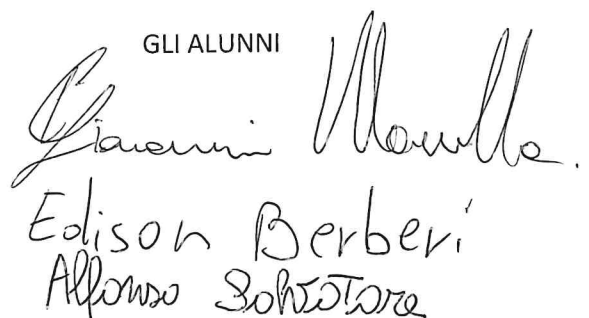 GLI ALUNNI
Giovanni
Edison Berberi
Alfonso Salvatore